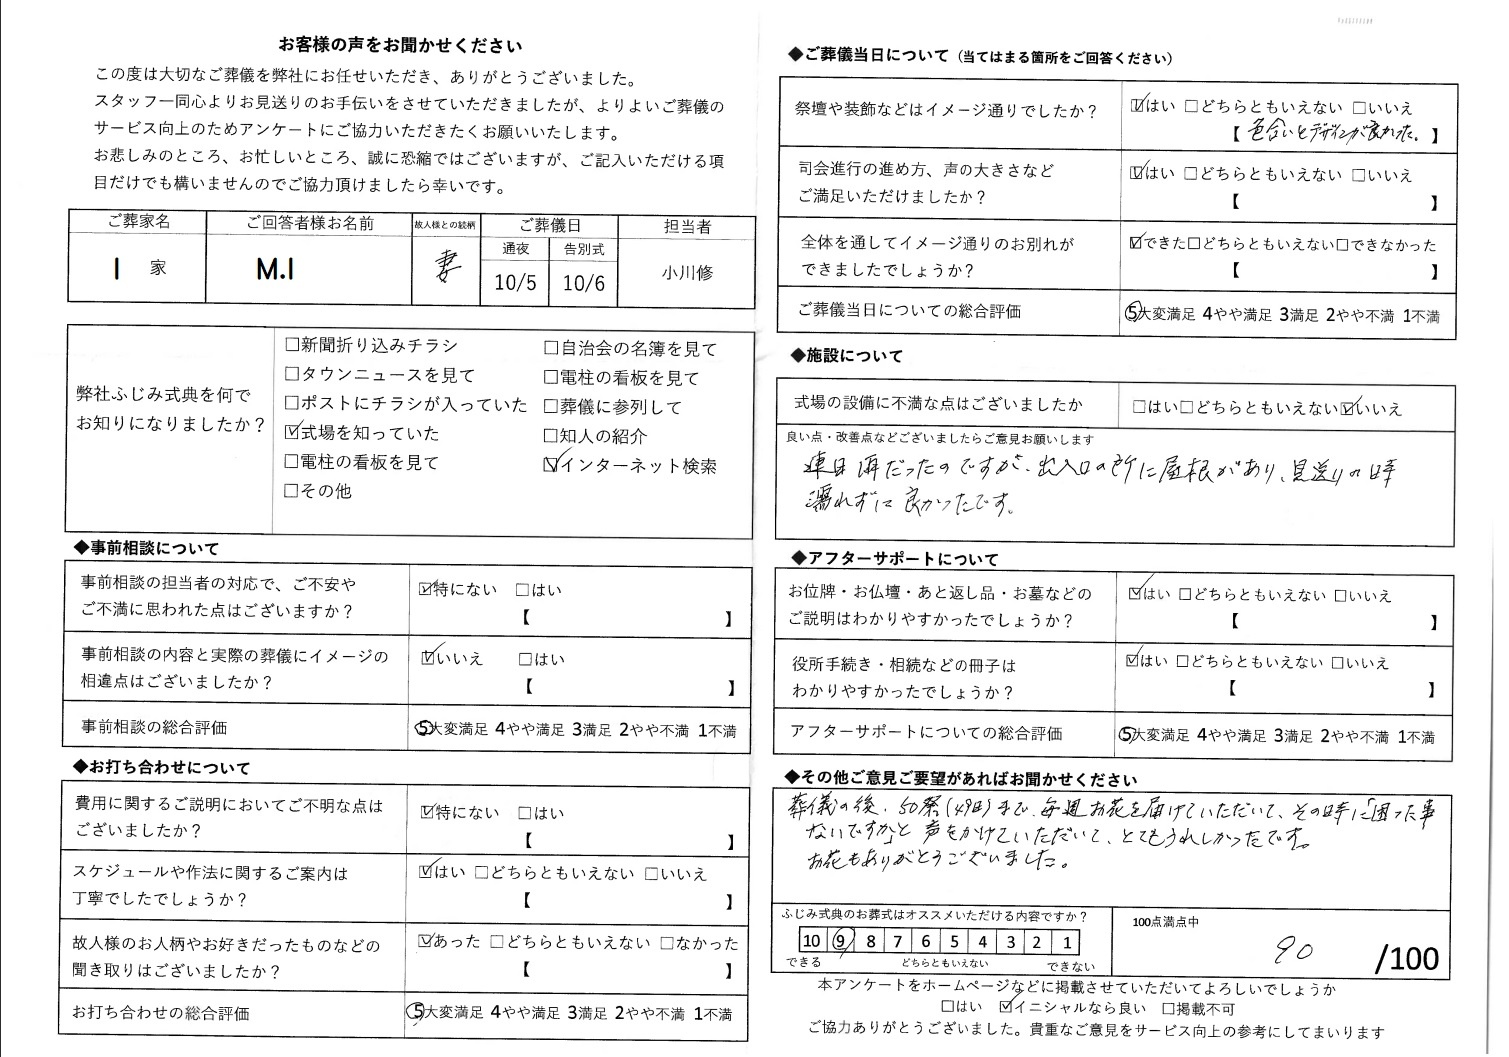 お客様の声をお聞かせください
この度は大切なご葬儀を弊社にお任せいただき、ありがとうございました。
スタッフ一同心よりお見送りのお手伝いをさせていただきましたが、よりよいご葬儀の
サービス向上のためアンケートにご協力いただきたくお願いいたします。
お悲しみのところ、お忙しいところ、誠に恐縮ではございますが、ご記入いただける項
目だけでも構いませんのでご協力頂けましたら幸いです。
ご葬家名 ご回答者様お名前 故人様との続柄 ご葬儀日 担当者
通夜 告別式
I 家 M.I 妻 10/5 10/6 小川修
弊社ふじみ式典を何で
お知りになりましたか？
□新聞折り込みチラシ □自治会の名簿を見て
□タウンニュースを見て □電柱の看板を見て
□ポストにチラシが入っていた □葬儀に参列して
☑式場を知っていた □知人の紹介
□電柱の看板を見て ☑インターネット検索
□その他
◆事前相談について
事前相談の担当者の対応で、ご不安や
ご不満に思われた点はございますか？
☑特にない □はい
【 】
事前相談の内容と実際の葬儀にイメージの
相違点はございましたか？
☑いいえ □はい
【 】
事前相談の総合評価 ⑤大変満足 4やや満足 3満足 2やや不満 1不満
◆お打ち合わせについて
費用に関するご説明においてご不明な点は
ございましたか？
☑特にない □はい
【 】
スケジュールや作法に関するご案内は
丁寧でしたでしょうか？
☑はい □どちらともいえない □いいえ
【 】
故人様のお人柄やお好きだったものなどの
聞き取りはございましたか？
☑あった □どちらともいえない □なかった
【 】
お打ち合わせの総合評価 ⑤大変満足 4やや満足 3満足 2やや不満 1不満
◆ご葬儀当日について（当てはまる箇所をご回答ください）
祭壇や装飾などはイメージ通りでしたか？
☑はい □どちらともいえない □いいえ
【 色合いとデザインが良かった。 】
司会進行の進め方、声の大きさなど
ご満足いただけましたか？
☑はい □どちらともいえない □いいえ
【 】
全体を通してイメージ通りのお別れが
できましたでしょうか？
☑できた□どちらともいえない□できなかった
【 】
ご葬儀当日についての総合評価 ⑤大変満足 4やや満足 3満足 2やや不満 1不満
◆施設について
式場の設備に不満な点はございましたか □はい□どちらともいえない☑いいえ
良い点・改善点などございましたらご意見お願いします
連日雨だったのですが、出入口の所に屋根があり、見送りの時
濡れずに良かったです。
◆アフターサポートについて
お位牌・お仏壇・あと返し品・お墓などの
ご説明はわかりやすかったでしょうか？
☑はい □どちらともいえない □いいえ
【 】
役所手続き・相続などの冊子は
わかりやすかったでしょうか？
☑はい □どちらともいえない □いいえ
【 】
アフターサポートについての総合評価 ⑤大変満足 4やや満足 3満足 2やや不満 1不満
◆その他ご意見ご要望があればお聞かせください
葬儀の後、50祭(49日)まで、毎週お花を届けていただいて、その時に「困った事
ないですか」と声をかけていただいて、とてもうれしかったです。
お花もありがとうございました。
ふじみ式典のお葬式はオススメいただける内容ですか？
10 ⑨ 8 7 6 5 4 3 2 1
できる どちらともいえない できない
100点満点中
90 /100
本アンケートをホームページなどに掲載させていただいてよろしいでしょうか
□はい ☑イニシャルなら良い □掲載不可
ご協力ありがとうございました。貴重なご意見をサービス向上の参考にしてまいります